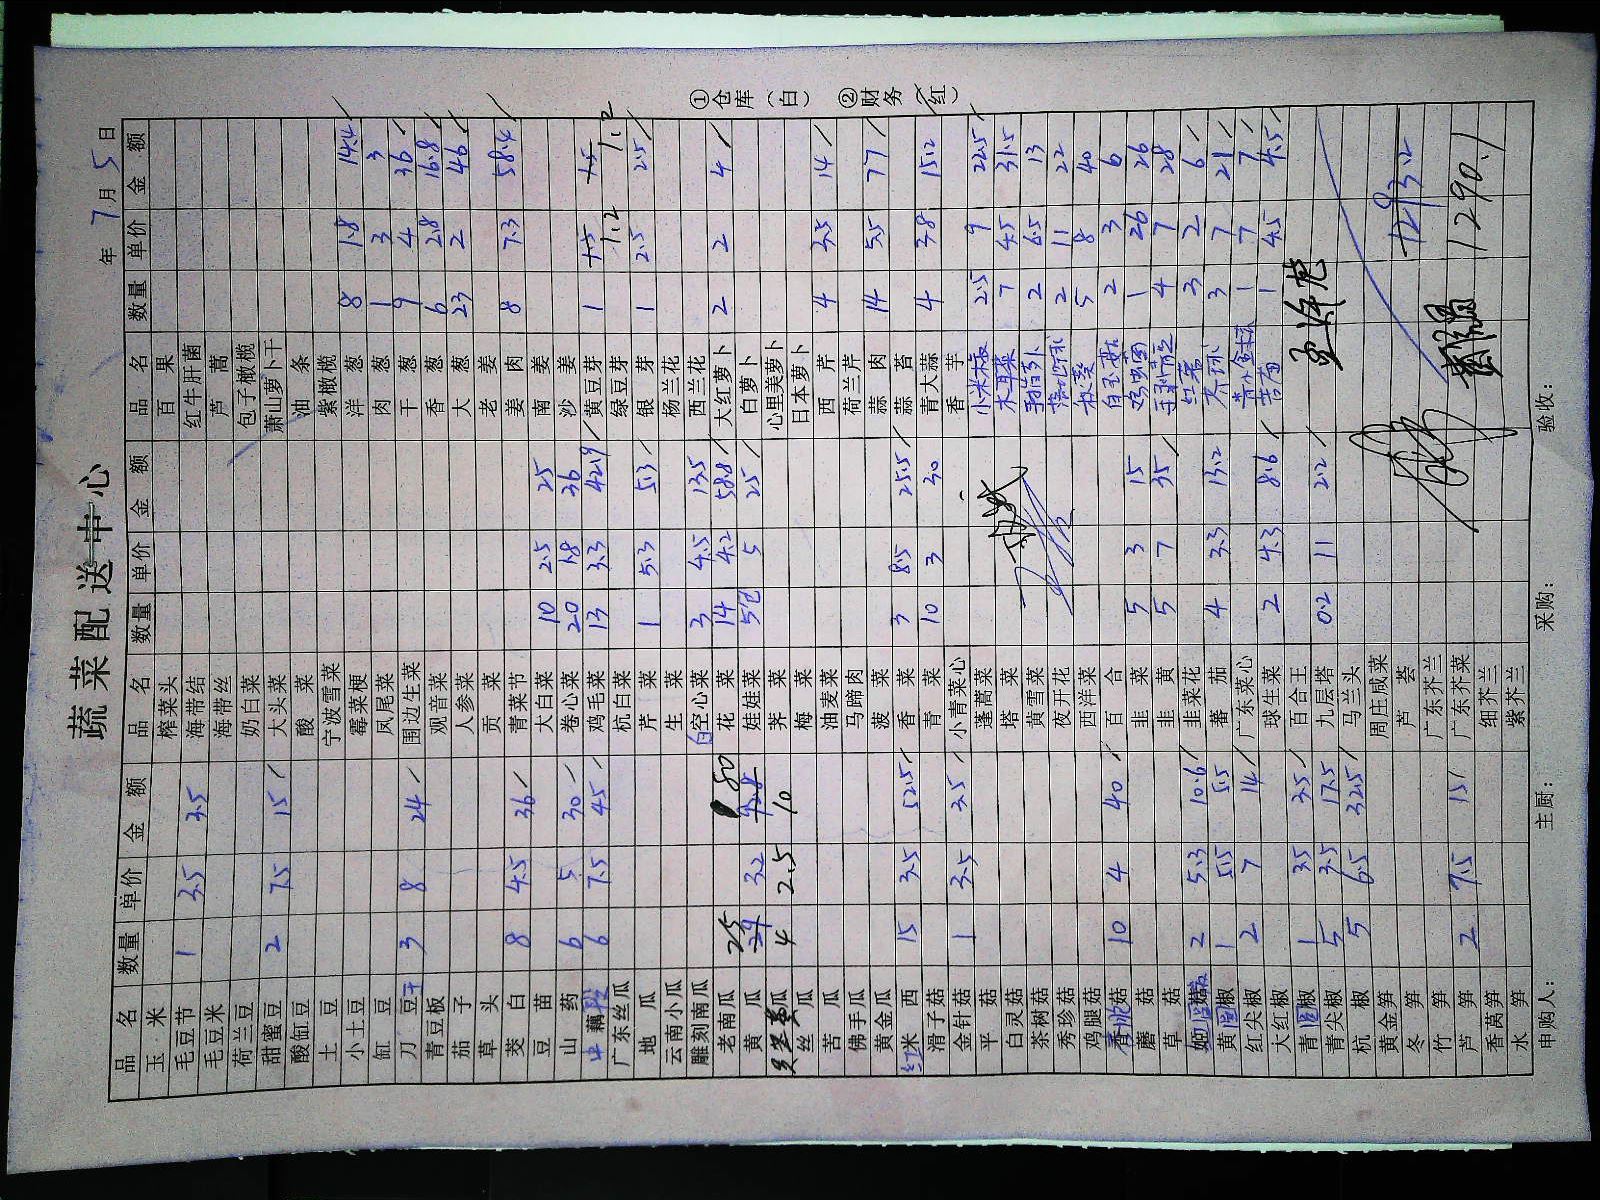 蔬菜配送中心
年 7 月 5 日
品名 数量 单价 金额 品名 数量 单价 金额 品名 数量 单价 金额
玉米 榨菜头 百果
毛豆节 1 3.5 3.5 海带结 红牛肝菌
毛豆米 海带丝 芦蒿
荷兰豆 奶白菜 包子橄榄
甜蜜豆 2 7.5 15 大头菜 萧山萝卜干
酸缸豆 酸菜 油条
土豆 宁波雪菜 紫橄榄
小土豆 霉菜梗 洋葱 8 1.8 14.4
缸豆 凤尾菜 肉葱 1 3 3
刀豆 干 3 8 24 围边生菜 干葱 9 4 36
青豆板 观音菜 香葱 6 2.8 16.8
茄子 人参菜 大葱 23 2 46
草头 贡菜 老姜
茭白 8 4.5 36 青菜节 姜肉 8 7.3 58.4
豆苗 大白菜 10 2.5 25 南姜
山药 6 5 30 卷心菜 20 1.8 36 沙姜
中藕段 6 7.5 45 鸡毛菜 13 3.3 42.9 黄豆芽 1 1.5 1.2 1.5 1.2
广东丝瓜 杭白菜 绿豆芽
地瓜 芹菜 1 5.3 5.3 银芽 1 2.5 2.5
云南小瓜 生菜 杨兰花
雕刻南瓜 白空心菜 3 4.5 13.5 西兰花
老南瓜 花菜 14 4.2 58.8 大红萝卜 2 2 4
黄瓜 24 25 3.2 80 娃娃菜 5包 5 25 白萝卜
丝瓜 4 2.5 10 荠菜 心里美萝卜
梅菜 日本萝卜
苦瓜 油麦菜 西芹 4 3.5 14
佛手瓜 马蹄肉 荷兰芹
黄金瓜 菠菜 蒜肉 14 5.5 77
红米西 15 3.5 52.5 香菜 3 8.5 25.5 蒜苔
滑子菇 青菜 10 3 30 青大蒜 4 3.8 15.2
金针菇 1 3.5 3.5 小青菜心 香芋
平菇 蓬蒿菜 小米椒 2.5 9 22.5
白灵菇 塔菜 木耳菜 7 4.5 31.5
茶树菇 黄雪菜 2 6.5 13
秀珍菇 夜开花 2 11 22
鸡腿菇 西洋菜 秋葵 5 8 40
香菇 10 4 40 百合 白玉菇 2 3 6
蘑菇 韭菜 5 3 15 1 26 26
草菇 韭黄 5 7 35 4 7 28
菇 2 5.3 10.6 韭菜花 红葱 3 2 6
黄圆椒 1 5.5 5.5 蕃茄 4 3.3 13.2 3 7 21
红尖椒 2 7 14 广东菜心 1 7 7
大红椒 球生菜 2 4.3 8.6 1 4.5 4.5
青圆椒 1 3.5 3.5 百合王
青尖椒 5 3.5 17.5 九层塔 0.2 11 2.2
杭椒 5 6.5 32.5 马兰头
黄金笋 周庄咸菜
冬笋 芦荟
竹笋 广东芥兰
芦笋 2 7.5 15 广东芥菜 1290.1
香莴笋 细芥兰
水笋 紫芥兰
申购人: 主厨: 采购: 验收:
①仓库(白) ②财务(红)